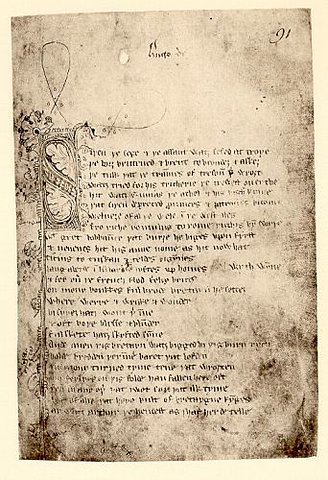 Hugo de
91
SIþen þe sege & þe assaut watz sesed at troye
þe borȝ brittened & brent to brondeȝ & askez
þe tulk þat þe trammes of tresoun þer wroȝt
watz tried for his tricherie þe trewest on erthe
hit watz ennias þe athel & his highe kynde
þat siþen depreced prouinces & patrounes bicome
welneȝe of al þe wele in þe west iles
fro riche romulus to rome ricchis hym swyþe
gret bobbaunce þat burȝe he biges vpon fyrst
& neuenes hit his aune nome as hit now hat
ticius to tuskan & teldes bigynnes
langaberde in lumbardie lyftes vp homes wyth wynne
& fer ouer þe french flod felix brutus
on mony bonkkes ful brode bretayn he settez
where werre & wrake & wonder
bi syþez hatz wont þerinne
& oft boþe blysse & blunder
ful skete hatz skyfted synne
Ande quen þis bretayn watz bigged bi þis burn rych
bolde bredden þerinne baret þat lofden
in mony turned tyme tene þat wroȝten
mo ferlyes on þis folde han fallen here oft
þen in any oþer þat I wot syn þat ilk tyme
bot of alle þat here bult of bretaygne kynges
ay watz arthur þe hendest as I haf herde telle